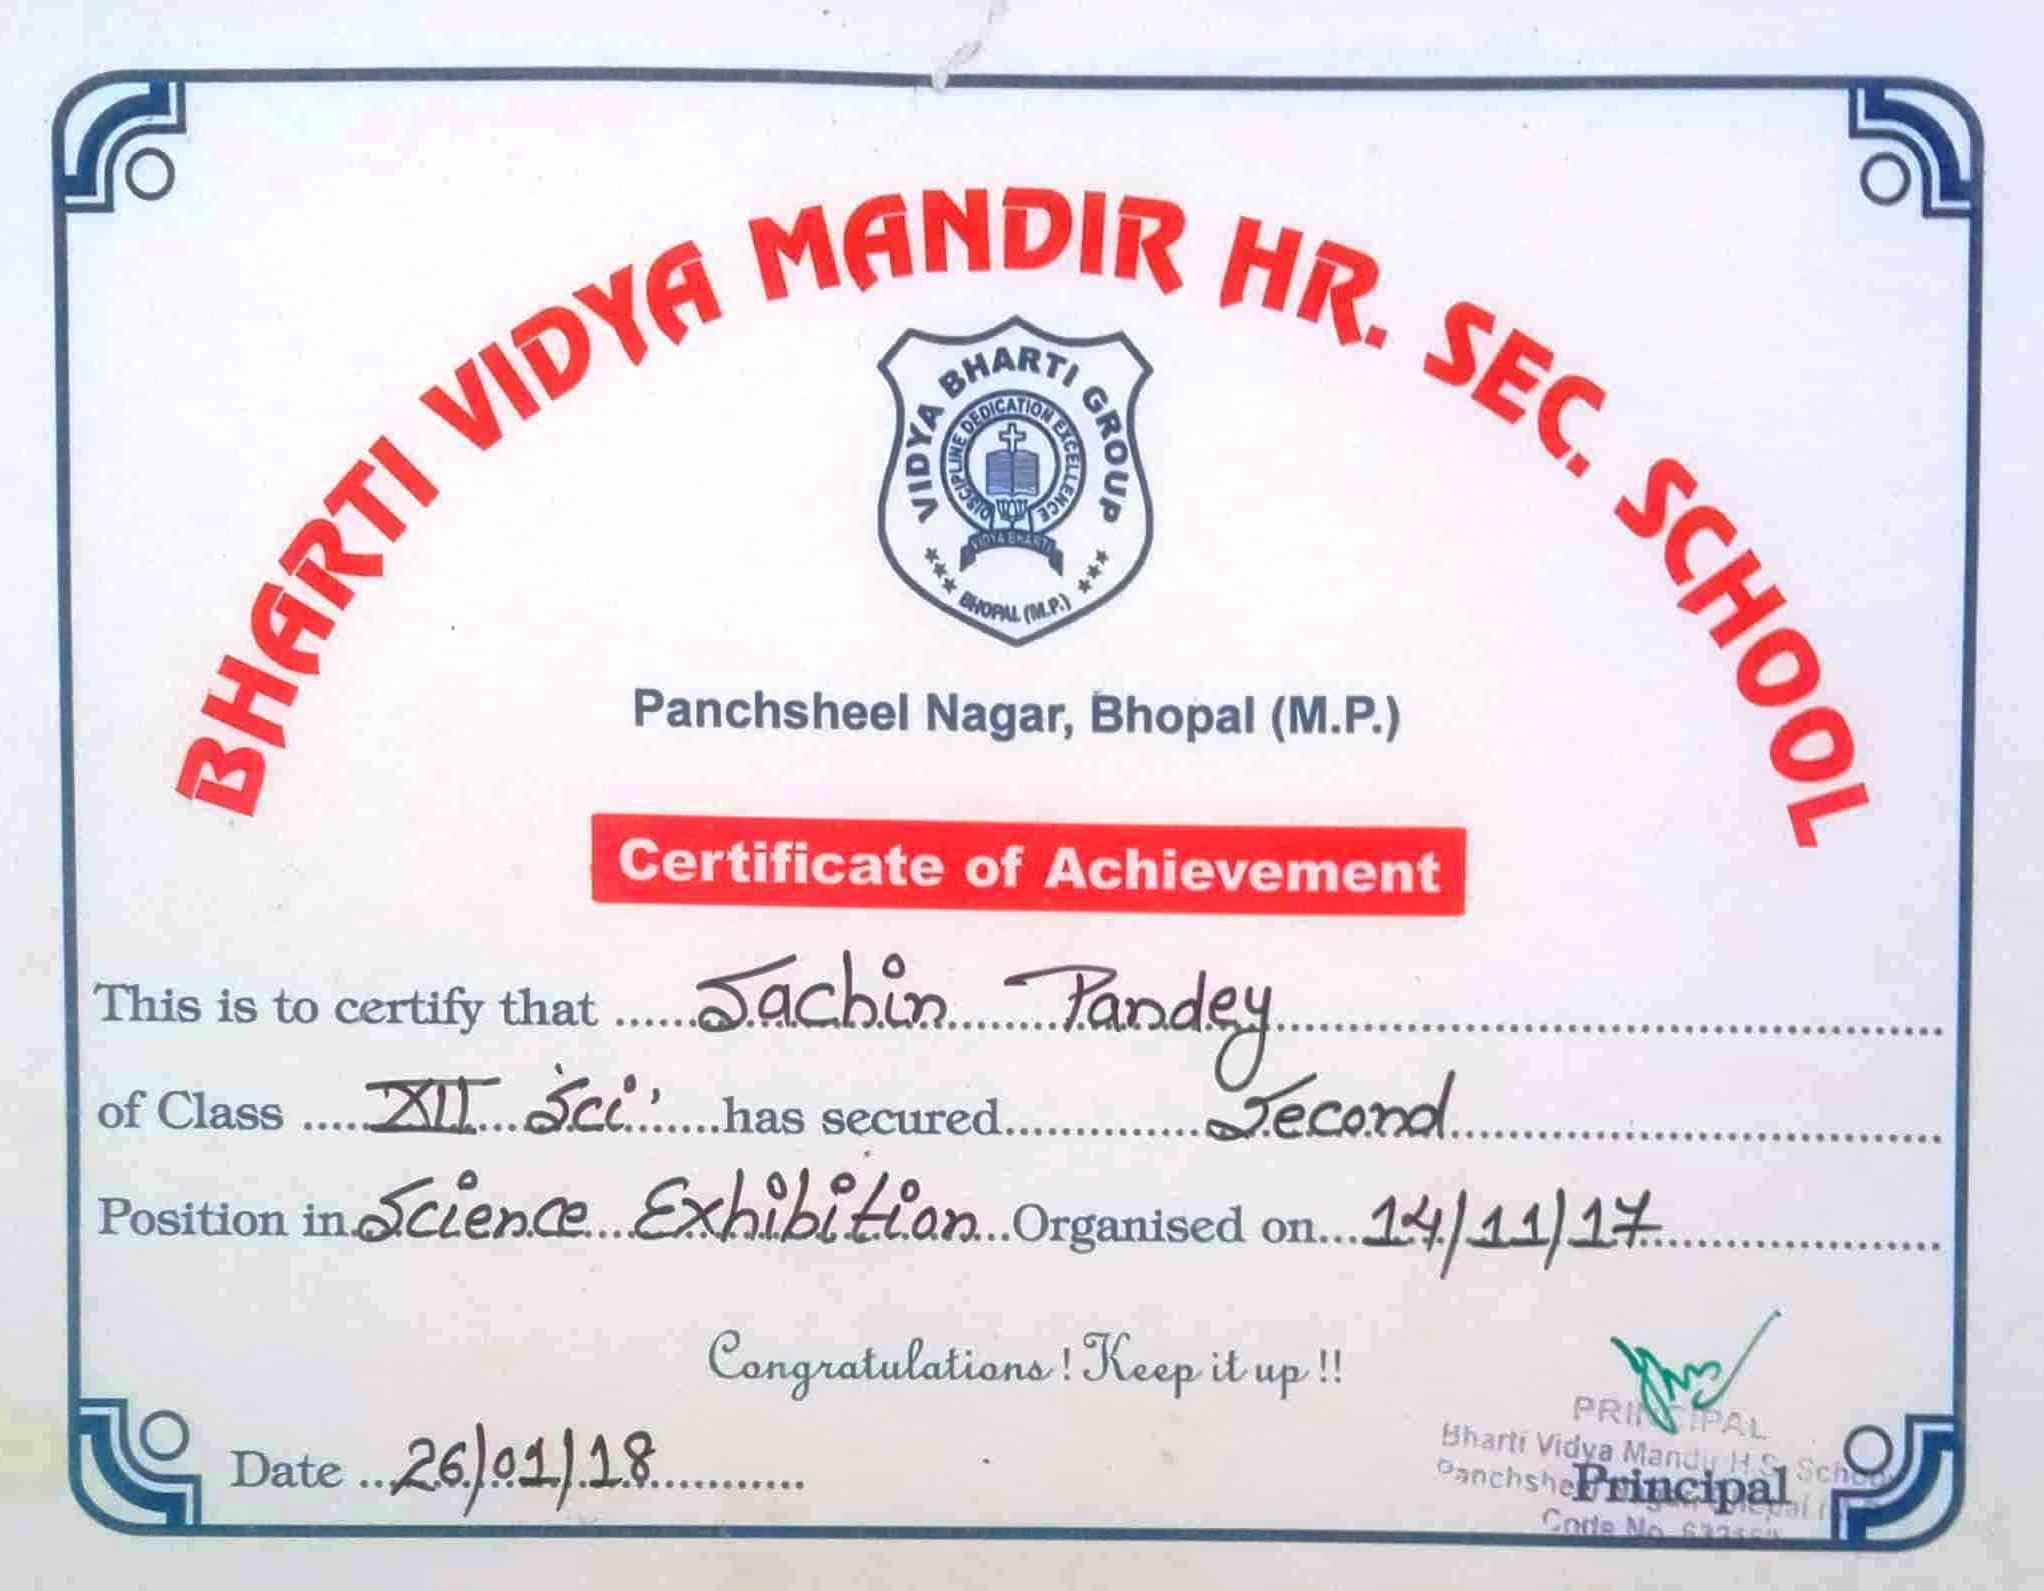 BHARTI VIDYA MANDIR HR. SEC. SCHOOL
VIDYA BHARTI GROUP
DISCIPLINE DEDICATION EXCELLENCE
VIDYA BHARTI
BHOPAL (M.P.)
Panchsheel Nagar, Bhopal (M.P.)
Certificate of Achievement
This is to certify that ......Sachin Pandey
of Class .....XII Sci. has secured Second
Position in Science Exhibition Organised on...14/11/17
Congratulations ! Keep it up !!
Date ...26/01/18
PRINCIPAL
Bharti Vidya Mandir H.S. School
Principal
Code No.